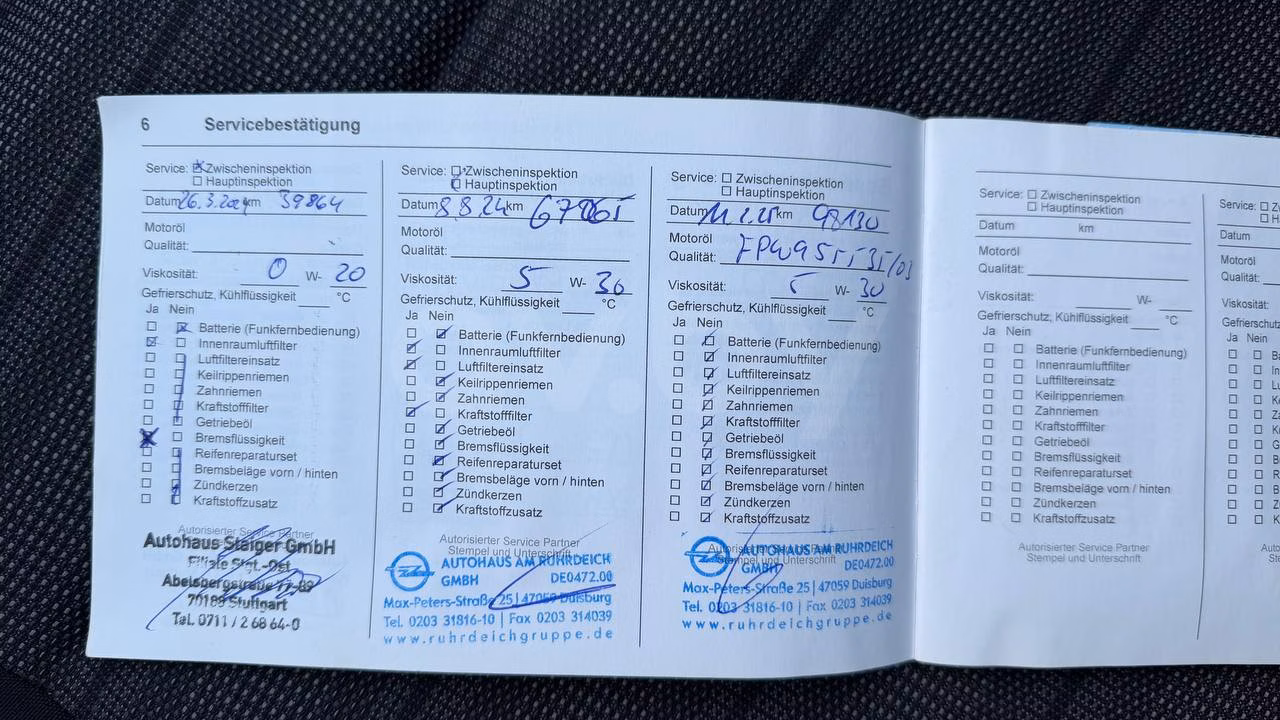 6 Servicebestätigung
Service: Zwischeninspektion
Hauptinspektion
Datum 26.3. km 39864
Motoröl
Qualität:
Viskosität: 0 W- 20
Gefrierschutz, Kühlflüssigkeit °C
Ja Nein
Batterie (Funkfernbedienung)
Innenraumluftfilter
Luftfiltereinsatz
Keilrippenriemen
Zahnriemen
Kraftstofffilter
Getriebeöl
Bremsflüssigkeit
Reifenreparaturset
Bremsbeläge vorn / hinten
Zündkerzen
Kraftstoffzusatz
Autorisierter Service Partner
Autohaus Staiger GmbH
Filiale Stgt.-Ost
Abelsbergstraße
70188 Stuttgart
Tel. 0711 / 2 68 64-0
Service: Zwischeninspektion
Hauptinspektion
Datum 8.8.24 km
Motoröl
Qualität:
Viskosität: 5 W- 30
Gefrierschutz, Kühlflüssigkeit °C
Ja Nein
Batterie (Funkfernbedienung)
Innenraumluftfilter
Luftfiltereinsatz
Keilrippenriemen
Zahnriemen
Kraftstofffilter
Getriebeöl
Bremsflüssigkeit
Reifenreparaturset
Bremsbeläge vorn / hinten
Zündkerzen
Kraftstoffzusatz
Autorisierter Service Partner
Stempel und Unterschrift
AUTOHAUS AM RUHRDEICH
GMBH DE0472.00
Max-Peters-Straße 25 | 47059 Duisburg
Tel. 0203 31816-10 | Fax 0203 314039
www.ruhrdeichgruppe.de
Service: Zwischeninspektion
Hauptinspektion
Datum km 98130
Motoröl
Qualität:
Viskosität: 5 W- 30
Gefrierschutz, Kühlflüssigkeit °C
Ja Nein
Batterie (Funkfernbedienung)
Innenraumluftfilter
Luftfiltereinsatz
Keilrippenriemen
Zahnriemen
Kraftstofffilter
Getriebeöl
Bremsflüssigkeit
Reifenreparaturset
Bremsbeläge vorn / hinten
Zündkerzen
Kraftstoffzusatz
Autorisierter Service Partner
Stempel und Unterschrift
AUTOHAUS AM RUHRDEICH
GMBH DE0472.00
Max-Peters-Straße 25 | 47059 Duisburg
Tel. 0203 31816-10 | Fax 0203 314039
www.ruhrdeichgruppe.de
Service: Zwischeninspektion
Hauptinspektion
Datum km
Motoröl
Qualität:
Viskosität: W-
Gefrierschutz, Kühlflüssigkeit °C
Ja Nein
Batterie (Funkfernbedienung)
Innenraumluftfilter
Luftfiltereinsatz
Keilrippenriemen
Zahnriemen
Kraftstofffilter
Getriebeöl
Bremsflüssigkeit
Reifenreparaturset
Bremsbeläge vorn / hinten
Zündkerzen
Kraftstoffzusatz
Autorisierter Service Partner
Stempel und Unterschrift
Service:
Datum
Motoröl
Qualität:
Viskosität:
Gefrierschutz
Ja Nein